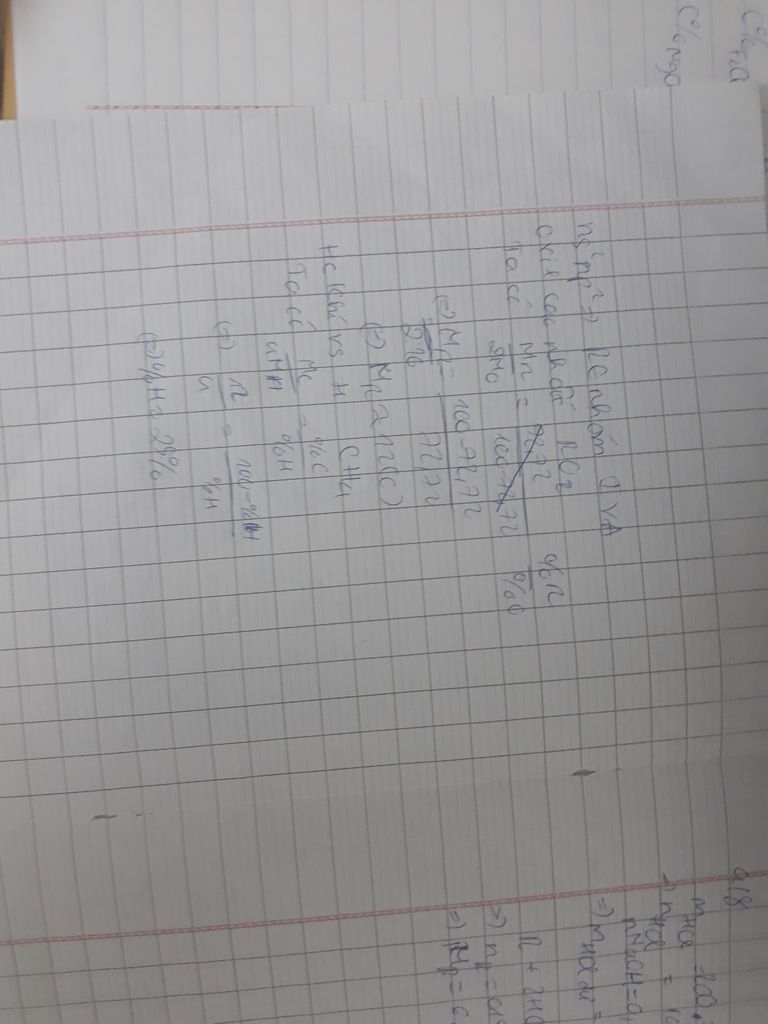 ns²np² => R ∈ nhóm IVA
oxit cao nhất RO₂
Ta có M_R / 2M_O = 72,72 / 100-72,72 %R / %O
(=) M_R / 2.16 = 100-72,72 / 72,72
(=) M_R = 12 (C)
HC khí vs H CH₄
Ta có M_C / 4M_H = %C / %H
(=) 12 / 4 = 100-%H / %H
(=) %H = 25%
C%
C%
9/8
m_HCl
=> n_HCl =
nNaOH = 0,
=> m_HCl dư =
R + 2HCl
=> n_R =
=> M_R =